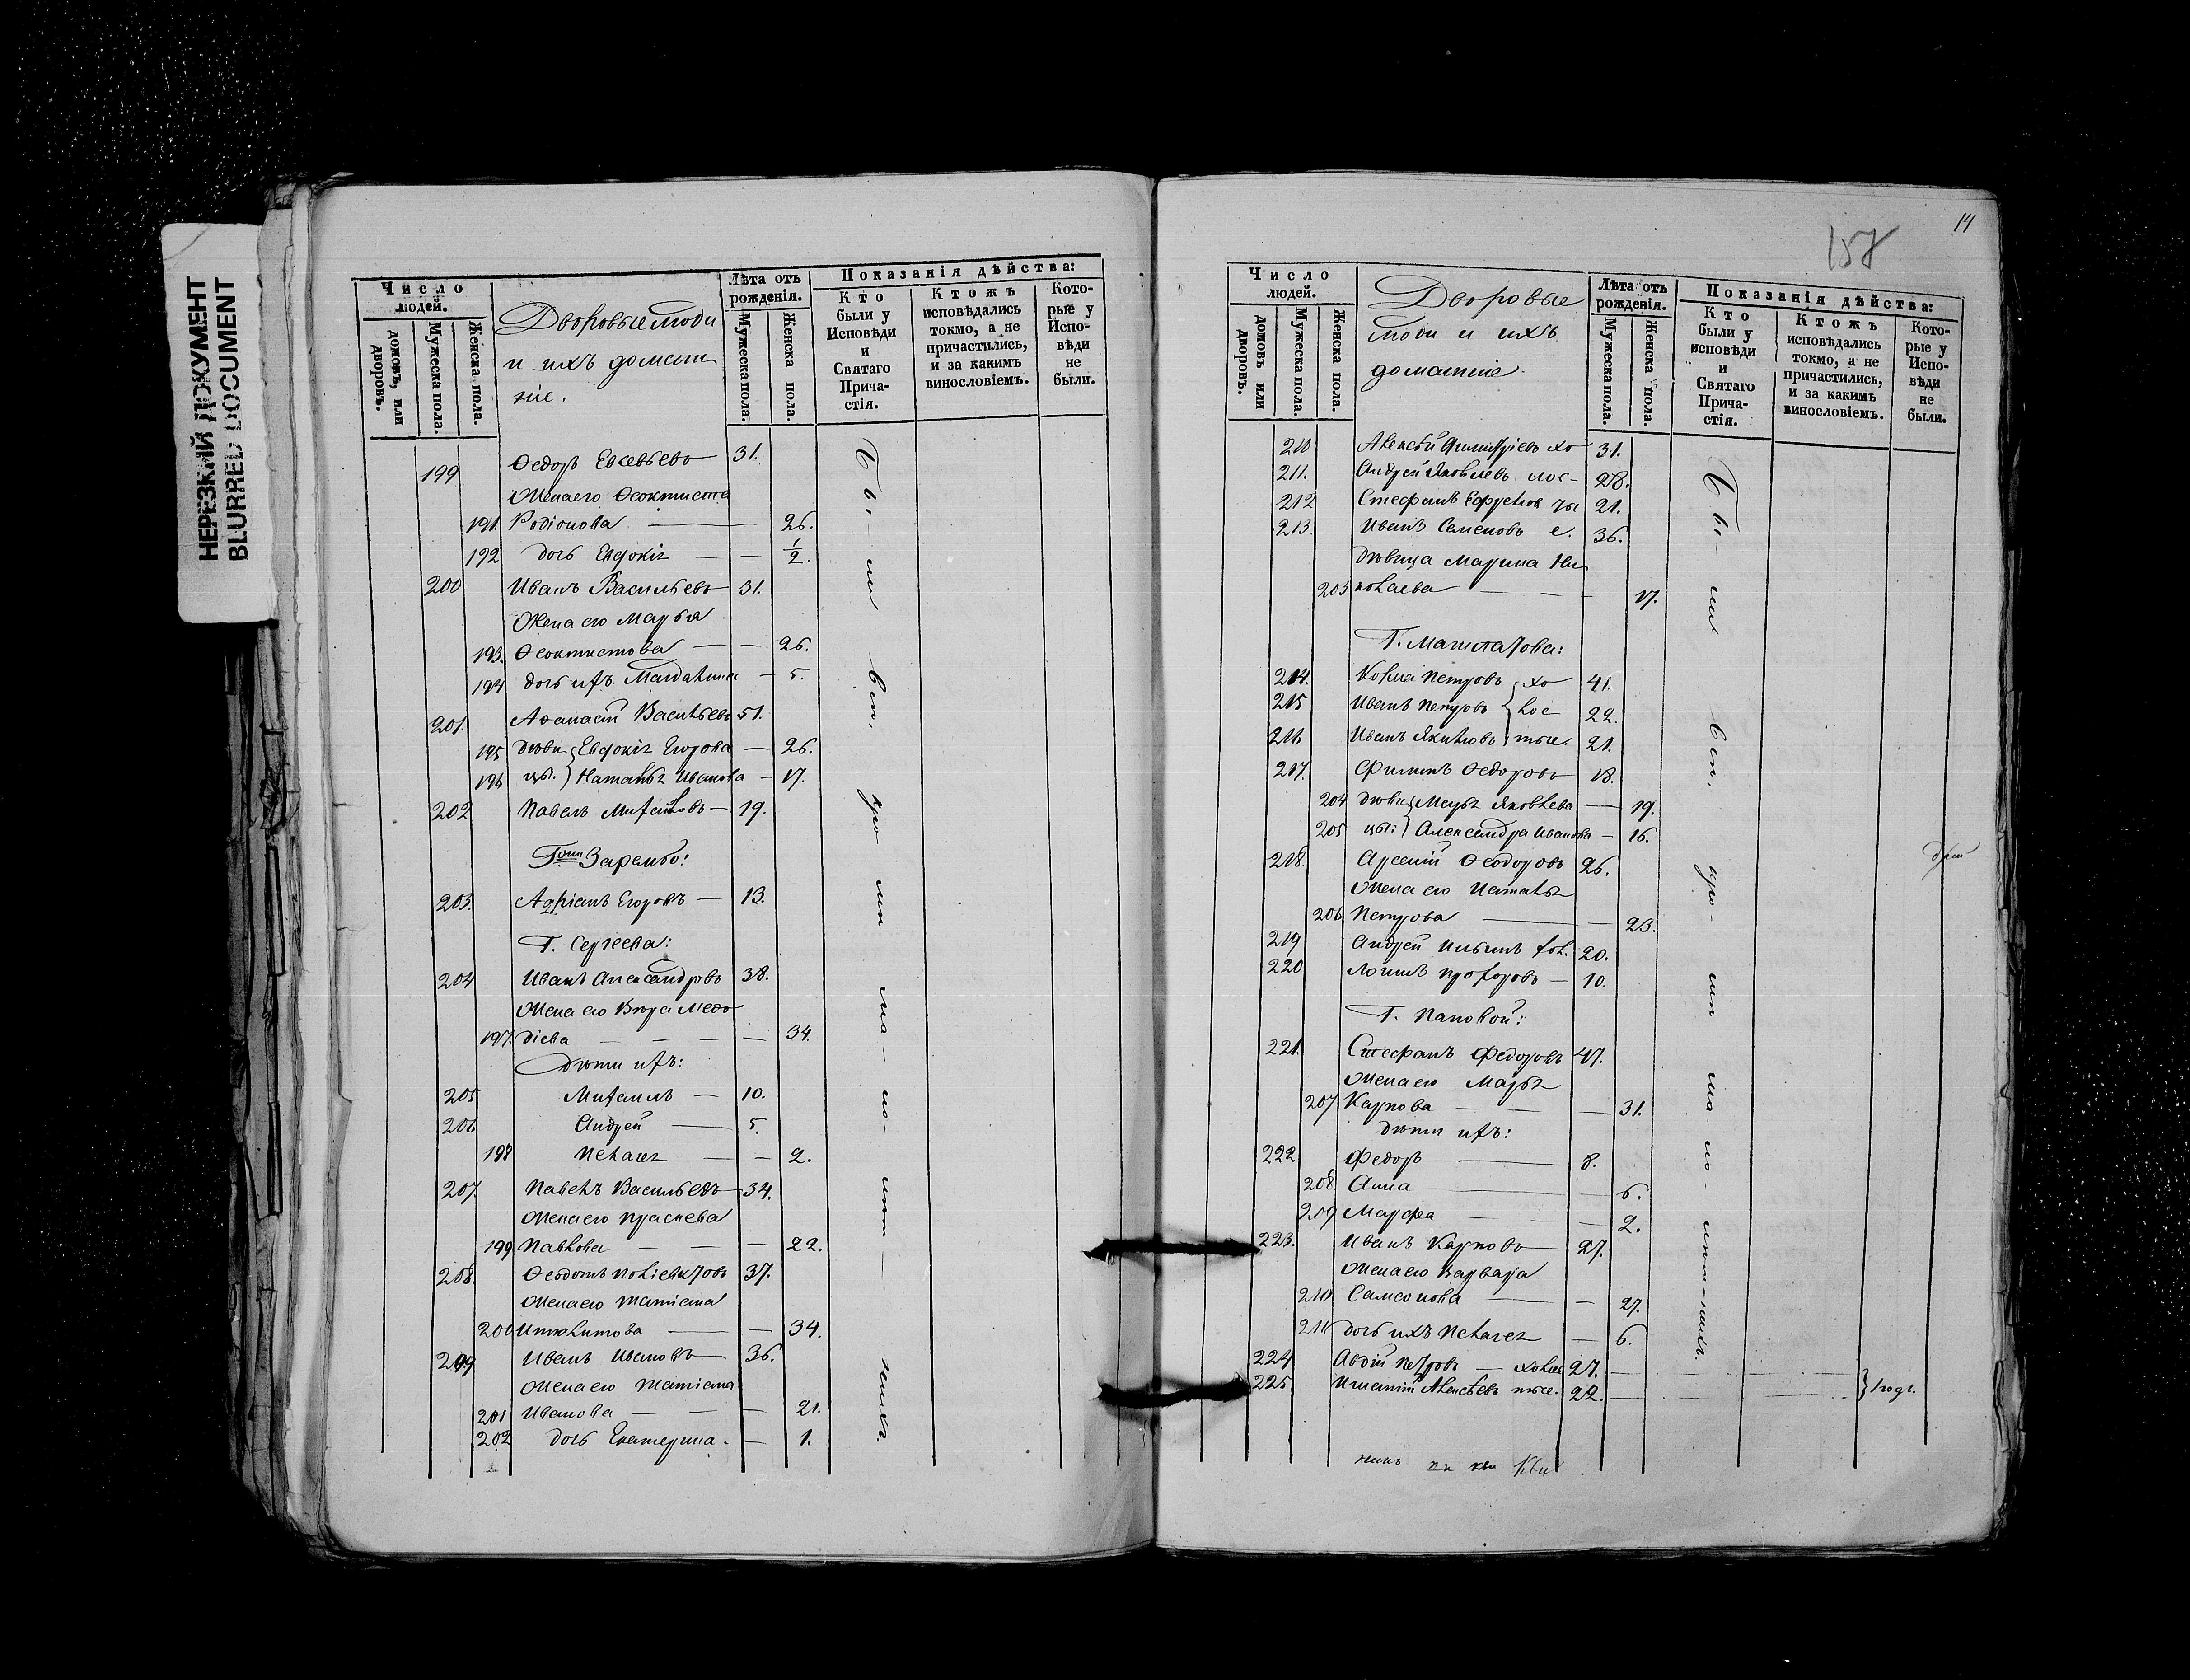 НЕРЕЗКИЙ ДОКУМЕНТ
BLURRED DOCUMENT
Число людей.
домовъ, или дворовъ.
Мужеска пола.
Женска пола.
Дворовые люди
и ихъ домаш
ніе.
Лѣта отъ рожденія.
Мужеска пола.
Женска пола.
Показанія дѣйства:
Кто были у Исповѣди и Святаго Причастія.
Ктожъ исповѣдались токмо, а не причастились, и за какимъ винословіемъ.
Которые у Исповѣди не были.
199 Ѳедоръ Евсевьевъ 31.
Жена его Ѳеоктиста
191. Родіонова — 26.
192 дочь Евдокія — — 1/2.
200 Иванъ Васильевъ 31.
Жена его Марья
193. Ѳеоктистова — — 26.
194 дочь ихъ Магдалина — 5.
201. Аѳанасій Васильевъ 51.
195 Дѣви Евдокія Егорова — 26.
196 цы. Наталья Иванова — 17.
202 Павелъ Михайловъ — 19.
Гжи Зарембо:
203. Адріанъ Егоровъ — 13.
Г. Сергеева:
204 Иванъ Александровъ 38.
Жена его Вѣра Меѳо
197. діева — — — — 34.
Дѣти ихъ:
205 Михаилъ — 10.
206 Андрей — 5.
198 Пелагея — — 2.
207. Павелъ Васильевъ 34.
Жена его Праскева
199 Павлова — — — 22.
208. Ѳеодотъ Поліевктовъ 37.
Жена его Татіана
200 — — 34.
209 Иванъ Ивановъ — 36.
Жена его Татіана
201 Иванова — — — 21.
202 дочь Екатерина. — 1.
Бы-ли
14
157
Число людей.
домовъ или дворовъ.
Мужеска пола.
Женска пола.
Дворовые
люди и ихъ
домашніе.
Лѣта отъ рожденія.
Мужеска пола.
Женска пола.
Показанія дѣйства:
Кто были у исповѣди и Святаго Причастія.
Ктожъ исповѣдались токмо, а не причастились, и за какимъ винословіемъ.
Которые у Исповѣди не были.
210 Алексѣй Димитріевъ хо 31.
211. Андрей Яковлевъ лос- 28.
212 Стефанъ 21.
213 Иванъ Семеновъ е. 36.
Дѣвица Марина Ни
203 колаева — — — 17.
214. Козма Петровъ хо 41.
215 Иванъ Петровъ лос 22.
216 Иванъ Яковлевъ тые. 21.
217. Филипъ Ѳедоровъ 18.
204 Дѣви Марья Яковлева — 19.
205 цы: Александра Иванова — 16.
218. Арсеній Ѳеодоровъ 26.
Жена его Наталья
206 Петрова — — 23.
219 Андрей Ильинъ хол. 20.
220 Логинъ Прохоровъ — 10.
Г. Паповой:
221. Стефанъ Федоровъ 47.
Жена его Марья
207 Карпова — — — 31.
Дѣти ихъ:
222 Федоръ — 8.
208. Анна — — 6.
209 Марфа — — — 2.
223. Иванъ Карповъ 27.
Жена его Варвара
210 Самсонова — — 27.
211 дочь ихъ Пелагея — 6.
224 Авдій Петровъ — холос 27.
225 Игнатій Алексѣевъ тые. 22. 1 годъ.
Бы-ли